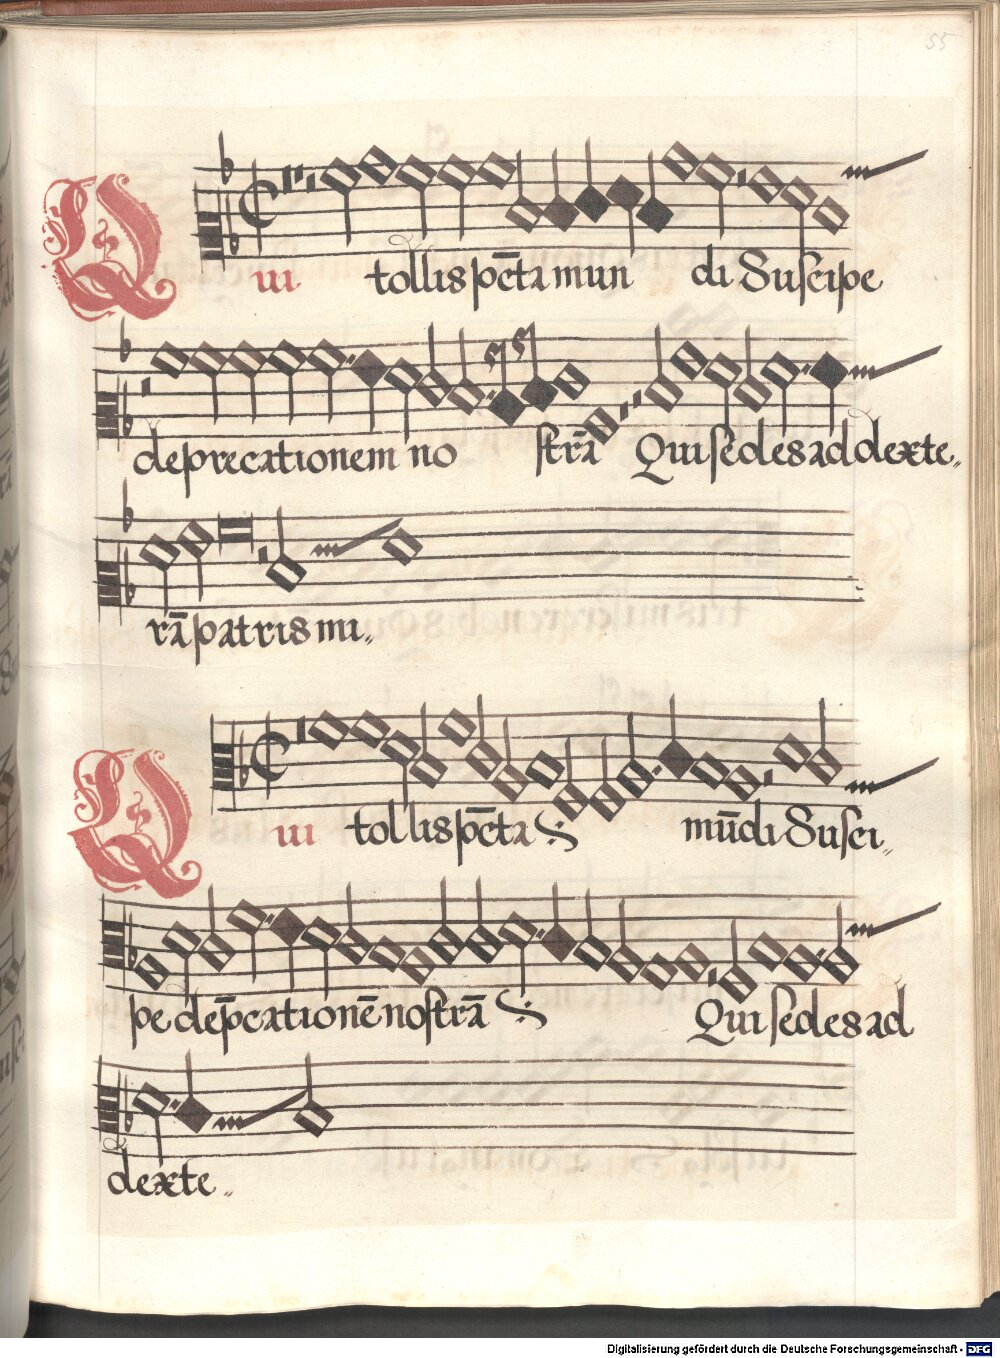 55
Qui tollis pc̄ta mun di Suscipe
deprecationem no strā Qui sedes ad dexte„
rā patris mi„
Qui tollis pc̄ta mūdi Susci„
pe dep̄cationē nostrā Qui sedes ad
dexte„
Digitalisierung gefördert durch die Deutsche Forschungsgemeinschaft - DFG